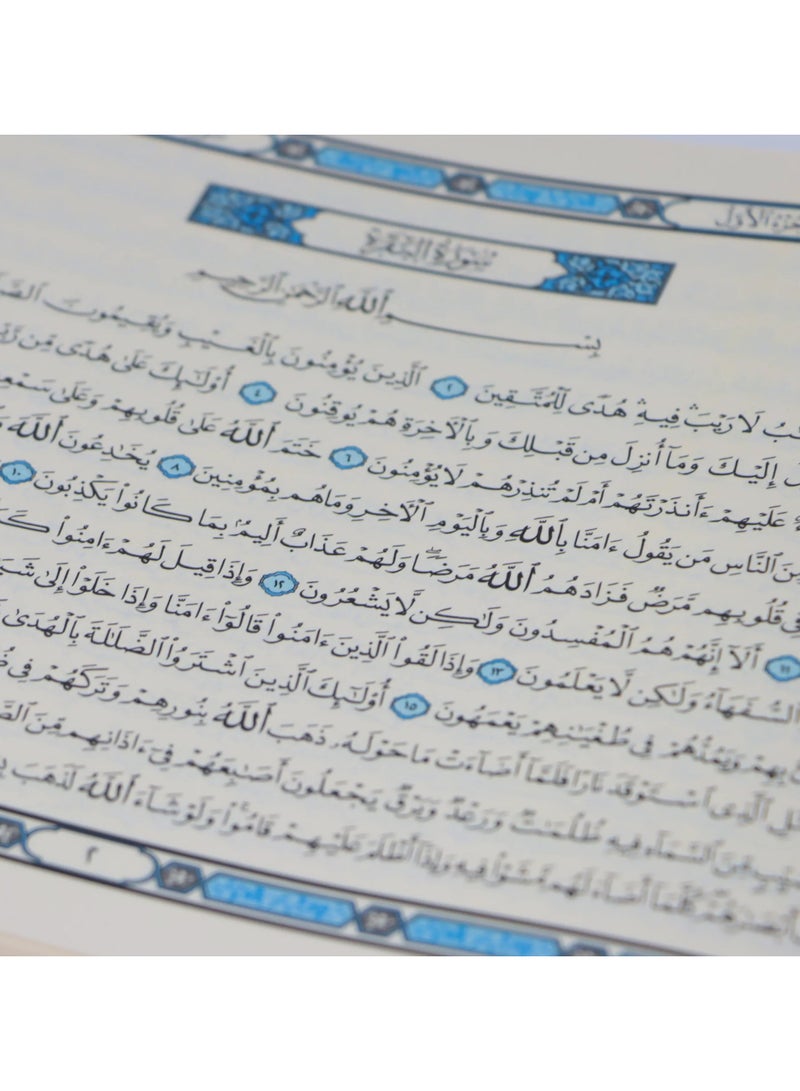 الجزء الأول
سورة البقرة
بسم الله الرحمن الرحيم
لَا رَيْبَ فِيهِ هُدًى لِّلْمُتَّقِينَ ٢ ٱلَّذِينَ يُؤْمِنُونَ بِٱلْغَيْبِ وَيُقِيمُونَ
إِلَيْكَ وَمَآ أُنزِلَ مِن قَبْلِكَ وَبِٱلْءَاخِرَةِ هُمْ يُوقِنُونَ ٤ أُوْلَٰٓئِكَ عَلَىٰ هُدًى مِّن
عَلَيْهِمْ ءَأَنذَرْتَهُمْ أَمْ لَمْ تُنذِرْهُمْ لَا يُؤْمِنُونَ ٦ خَتَمَ ٱللَّهُ عَلَىٰ قُلُوبِهِمْ وَعَلَىٰ
ٱلنَّاسِ مَن يَقُولُ ءَامَنَّا بِٱللَّهِ وَبِٱلْيَوْمِ ٱلْءَاخِرِ وَمَا هُم بِمُؤْمِنِينَ ٨ يُخَٰدِعُونَ ٱللَّهَ
قُلُوبِهِم مَّرَضٌ فَزَادَهُمُ ٱللَّهُ مَرَضًا وَلَهُمْ عَذَابٌ أَلِيمٌۢ بِمَا كَانُوا۟ يَكْذِبُونَ ١٠
١١ أَلَآ إِنَّهُمْ هُمُ ٱلْمُفْسِدُونَ وَلَٰكِن لَّا يَشْعُرُونَ ١٢ وَإِذَا قِيلَ لَهُمْ ءَامِنُوا۟
ٱلسُّفَهَآءُ وَلَٰكِن لَّا يَعْلَمُونَ ١٣ وَإِذَا لَقُوا۟ ٱلَّذِينَ ءَامَنُوا۟ قَالُوٓا۟ ءَامَنَّا وَإِذَا خَلَوْا۟ إِلَىٰ
بِهِمْ وَيَمُدُّهُمْ فِى طُغْيَٰنِهِمْ يَعْمَهُونَ ١٥ أُوْلَٰٓئِكَ ٱلَّذِينَ ٱشْتَرَوُا۟ ٱلضَّلَٰلَةَ بِٱلْهُدَىٰ
ٱلَّذِى ٱسْتَوْقَدَ نَارًا فَلَمَّآ أَضَآءَتْ مَا حَوْلَهُۥ ذَهَبَ ٱللَّهُ بِنُورِهِمْ وَتَرَكَهُمْ فِى
مِّنَ ٱلسَّمَآءِ فِيهِ ظُلُمَٰتٌ وَرَعْدٌ وَبَرْقٌ يَجْعَلُونَ أَصَٰبِعَهُمْ فِىٓ ءَاذَانِهِم مِّنَ
أَبْصَٰرَهُمْ كُلَّمَآ أَضَآءَ لَهُم مَّشَوْا۟ فِيهِ وَإِذَآ أَظْلَمَ عَلَيْهِمْ قَامُوا۟ وَلَوْ شَآءَ ٱللَّهُ لَذَهَبَ
٢